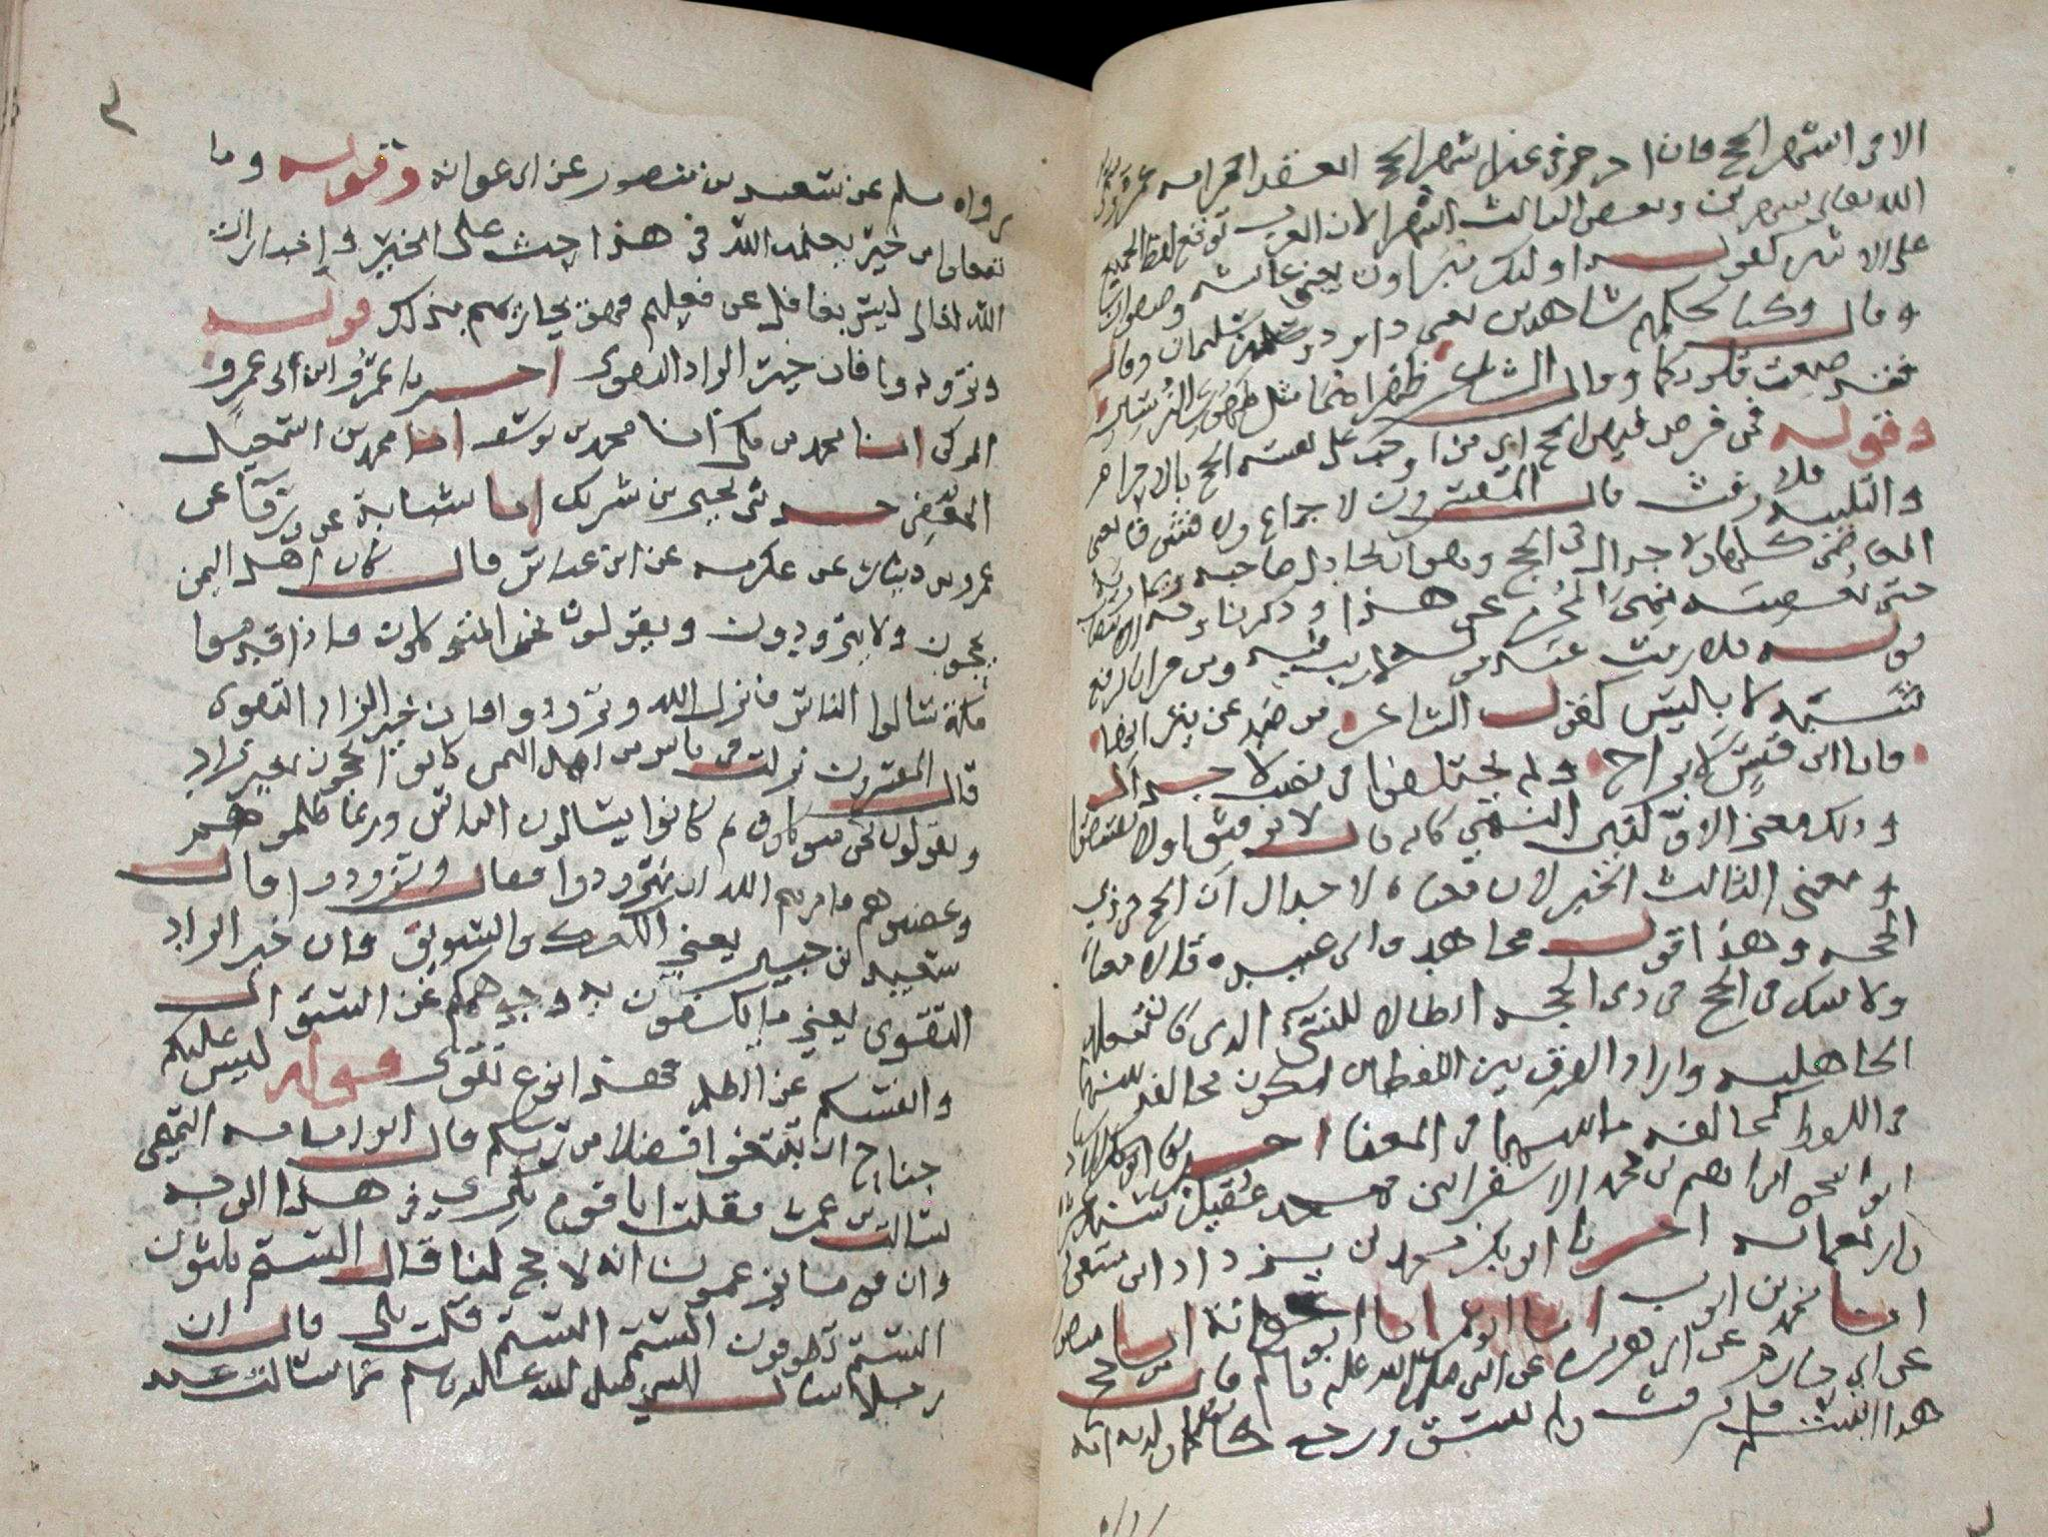 الا في اشهر الحج فان احرم في غير اشهر الحج انعقد احرامه عمرة
الله تعالى شهرين وبعض الثالث اشهرا لان العرب توقع لفظ الجمع
على الاثنين كقوله اولئك مبراون يعني عائشه وصفوان
وقال وكنا لحكمهم شاهدين يعني داود وسليمان وقال
فقد صغت قلوبكما وقال الشاعر ظهراهما مثل ظهور الترسين
وقوله فمن فرض فيهن الحج اي من اوجب على نفسه الحج بالاحرام
والتلبيه فلا رفث قال المفسرون لا جماع ولا فسق يعني
المعاصي كلها ولا جدال في الحج وهو ان يجادل صاحبه
حتى يغضبه نهي المحرم عن هذا وذكرنا
قوله فلا رفث عند قوله لا ريب فيه ومن قرا بالرفع
شبه لا بليس كقول الشاعر من صد عن نيرانها
فانا ابن قيس لا براح ولم يختلفوا في نصب لا جدال
وذلك معنى الاولين النهي كانه قال لا ترفثوا ولا تفسقوا
ومعنى الثالث الخبر لان معناه لا جدال ان الحج في ذي
الحجه وهذا قول مجاهد وابي عبيده قالا معناه
ولا شك في الحج في ذي الحجه ابطالا للنسيء الذي كان تفعله
الجاهليه واراد الفرق بين اللفظين ليكون مخالفه
في اللفظ كمخالفه ما بينهما في المعنى اخبرنا
ابو اسحق ابراهيم بن محمد الاسفرايني
واربعمائه اخبرنا ابو بكر محمد بن يزداد ابن مسعود
انبا محمد بن ايوب انبا ابو انبا ابو عوانة انبا منصور
عن ابي حازم عن ابي هريره عن النبي صلى الله عليه وسلم قال من حج
هذا البيت فلم يرفث ولم يفسق ورجع كان كما ولدته امه
٣
رواه مسلم عن سعيد بن منصور عن ابي عوانه وقوله وما
تفعلوا من خير يعلمه الله في هذا حث على الخير واخبار ان
الله تعالى ليس بغافل عن فعلهم فهو يجازيهم بذلك قوله
وتزودوا فان خير الزاد التقوى اخبرنا عمرو ابن ابي عمرو
المزكي انبا محمد بن مكي انبا محمد بن يوسف انبا محمد بن اسمعيل
الجعفي حدثني يحيى بن شريك انبا شبابة عن ورقا عن
عمرو بن دينار عن عكرمه عن ابن عباس قال كان اهل اليمن
يحجون ولا يتزودون ويقولون نحن المتوكلون فاذا قدموا
مكة سالوا الناس فانزل الله وتزودوا فان خير الزاد التقوى
قال المفسرون نزلت في ناس من اهل اليمن كانوا يحجون بغير زاد
ويقولون نحن متوكلون ثم كانوا يسالون الناس وربما ظلموهم
وغصبوهم فامرهم الله ان يتزودوا فقال وتزودوا قال
سعيد بن جبير يعني الكعك والسويق فان خير الزاد
التقوى يعني ما تكفون به وجوهكم عن السؤال
وانفسكم عن الظلم فهذا نوع تقوى قوله ليس عليكم
جناح ان تبتغوا فضلا من ربكم قال ابو امامه التيمي
سالت بن عمر فقلت انا قوم نكري في هذا الوجه
وان قوما يزعمون انه لا حج لنا قال الستم تلبون
الستم تطوفون الستم الستم قلت بلى قال ان
رجلا سال النبي صلى الله عليه وسلم عما سالت عنه